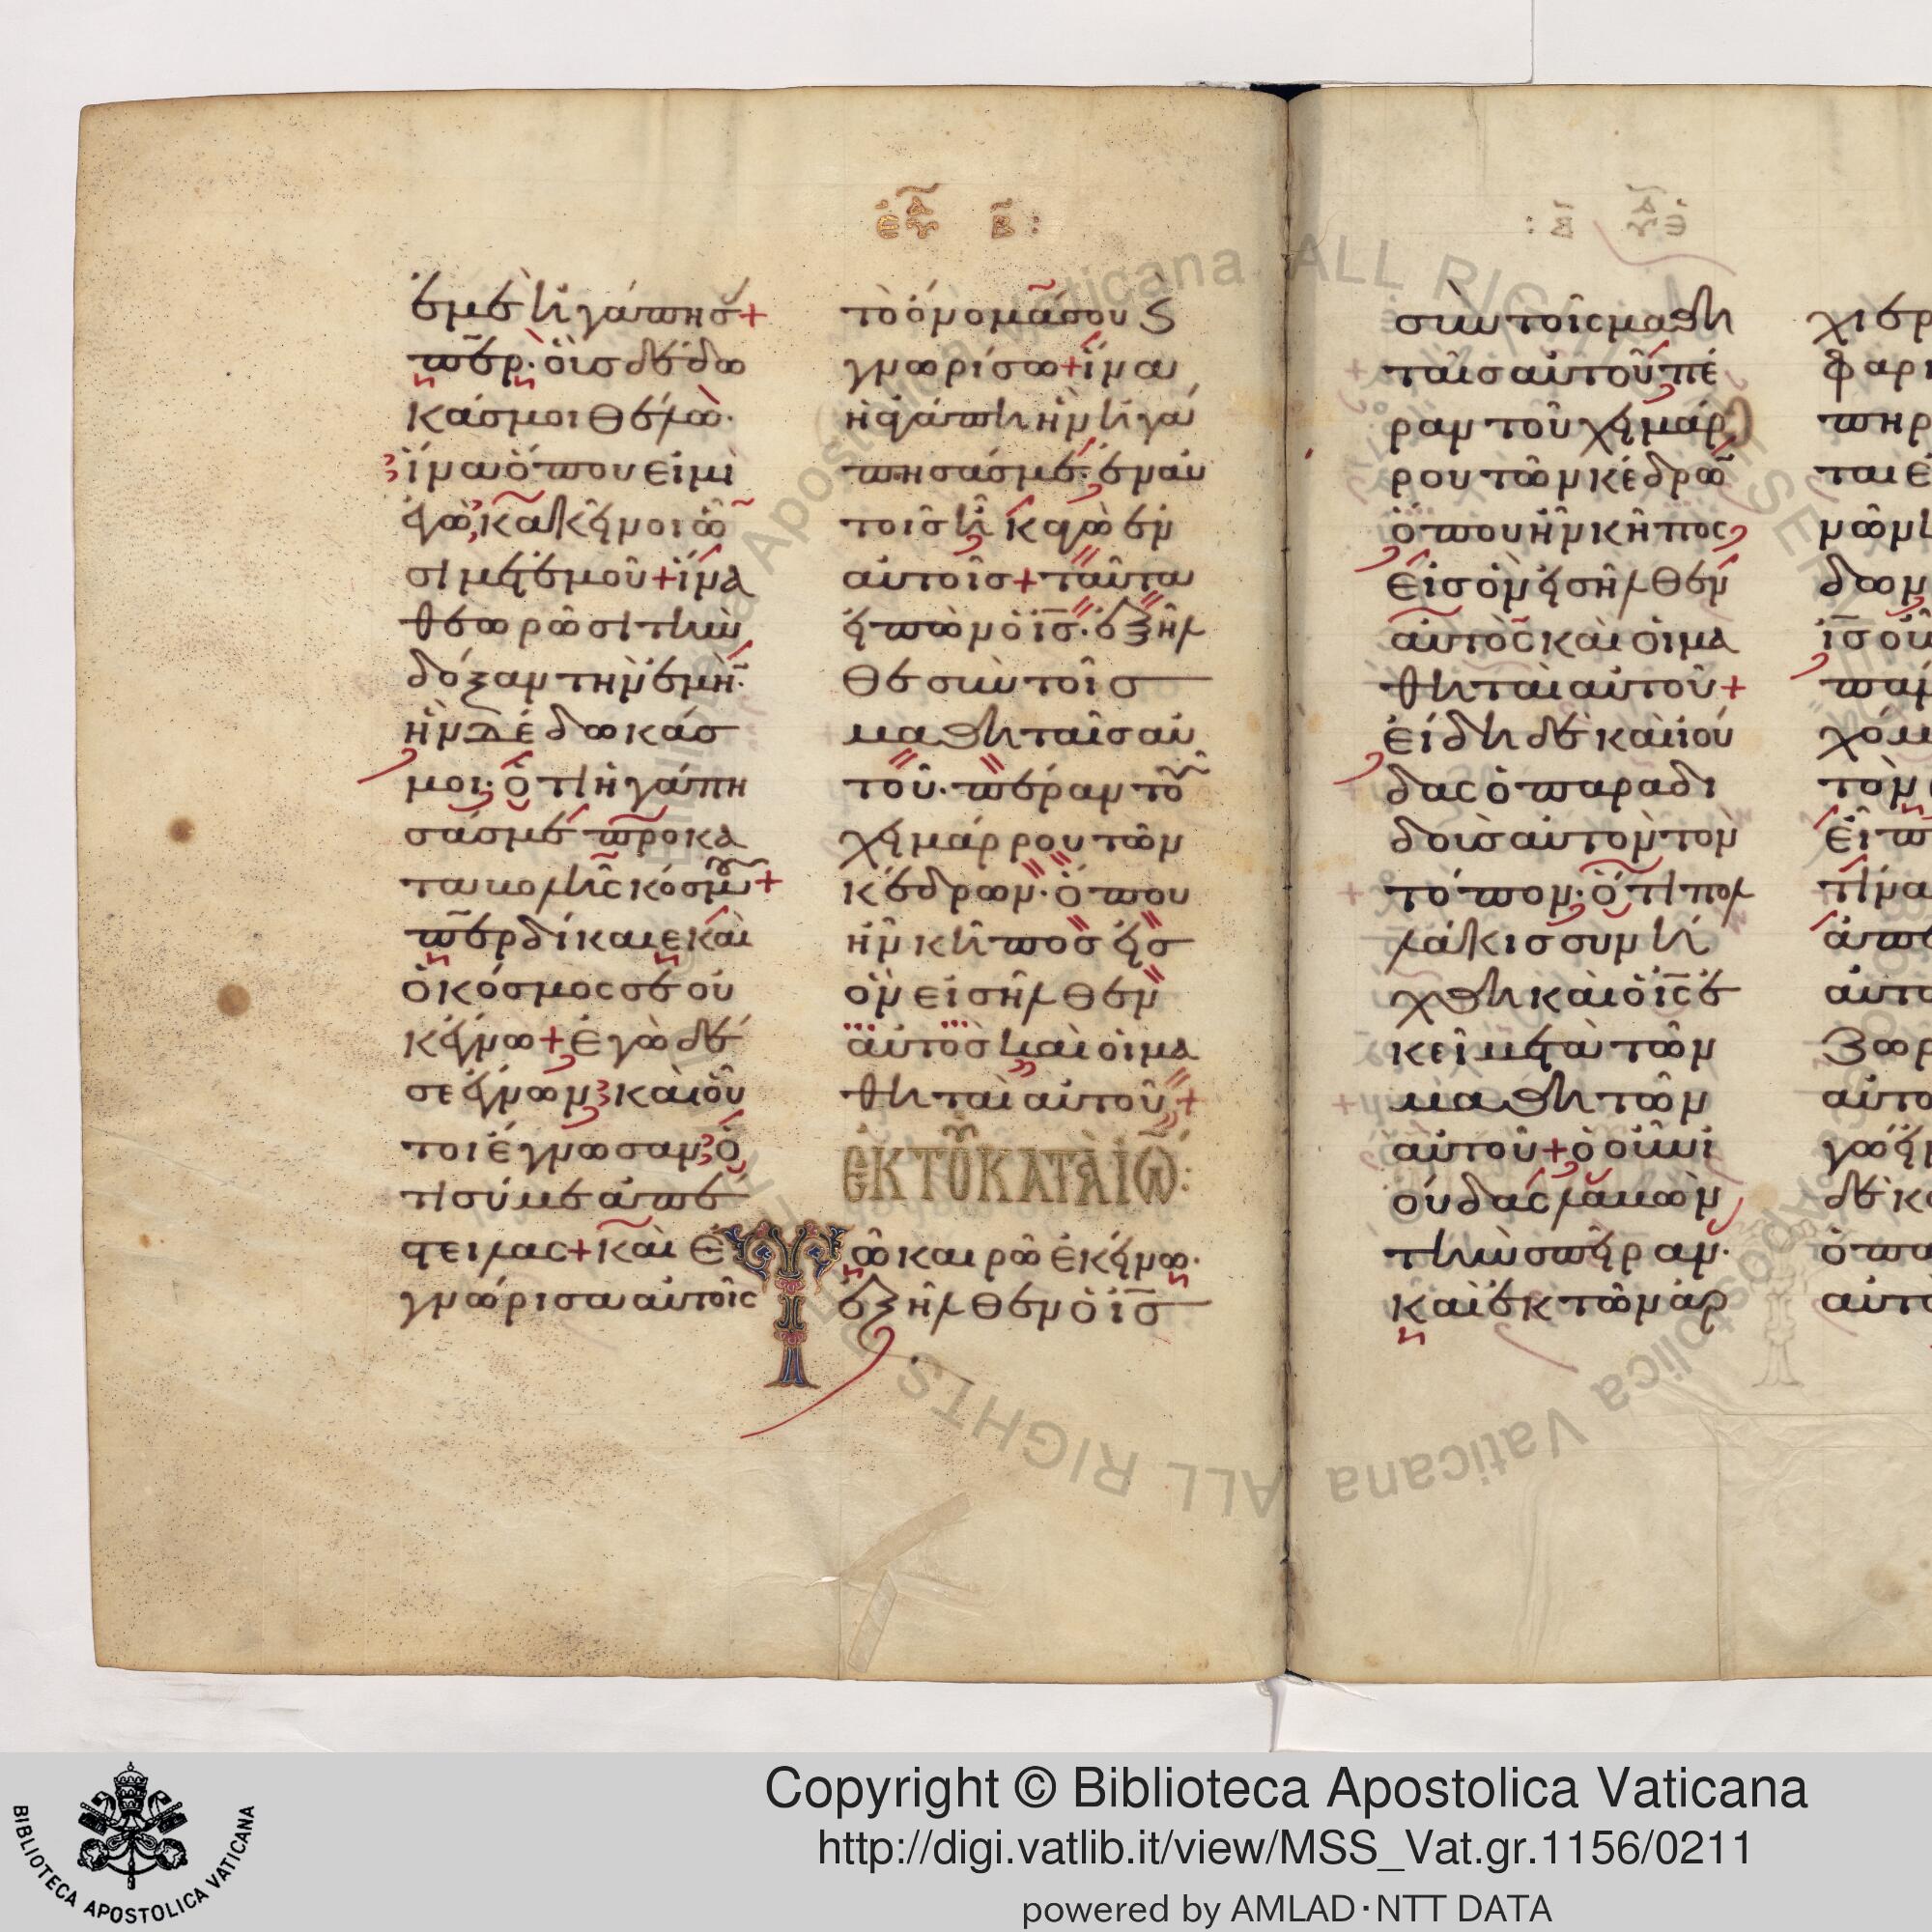 εὐα Β:
ἐμὲ ἠγάπησ+
περ· οὓσ δέδω
κάσ μοι θέλω·
ἵνα ὅπου εἰμὶ
ἐγὼ, κἀκεῖνοι ὦ
σι μετ' ἐμοῦ+ ἵνα
θεωρῶσι τὴν
δόξαν τὴν ἐμὴν·
ἣν δέδωκάσ
μοι· ὅτι ἠγάπη
σάσ με πρὸ κα
ταβολῆς κόσμου+
περ δίκαιε καὶ
ὁ κόσμος σε οὐ
κ ἔγνω+ ἐγὼ δέ
σε ἔγνων, καὶ οὗ
τοι ἔγνωσαν, ὅ
τι σύ με ἀπέ
στειλας+ καὶ ἐ
γνώρισα αὐτοῖς
τὸ ὄνομά σου κ
γνωρίσω+ ἵνα
ἡ ἀγάπη ἣν ἠγά
πησάσ με· ἐν αὐ
τοῖσ ἦ κἀγὼ ἐν
αὐτοῖσ+ ταῦτα
εἰπὼν ὁ ισ· ἐξῆλ
θε σὺν τοῖσ
μαθηταῖσ αὐ
τοῦ· πέραν τοῦ
χειμάρρου τῶν
κέδρων· ὅπου
ἦν κῆποσ εἰσ
ὃν εἰσῆλθεν
αὐτὸσ καὶ οἱ μα
θηταὶ αὐτοῦ+
ἐκ τοῦ κατὰ ἰω:
Τῶ καιρῶ ἐκείνω·
ἐξῆλθεν ὁ ισ
σὺν τοῖς μαθη
ταῖσ αὐτοῦ πέ
ραν τοῦ χειμάρ
ρου τῶν κέδρων
ὅπου ἦν κῆπος
εἰσ ὃν εἰσῆλθεν
αὐτὸς καὶ οἱ μα
θηταὶ αὐτοῦ+
ἤδει δὲ καὶ ἰού
δας ὁ παραδι
δοὺσ αὐτὸν τὸν
τόπον· ὅτι πολ
λάκισ συνή
χθη καὶ ὁ ις ἐ
κεῖ μετὰ τῶν
μαθητῶν
αὐτοῦ+ ὁ οὖν ἰ
ούδας λαβὼν
τὴν σπεῖραν·
καὶ ἐκ τῶν ἀρ
χιερ
φαρι
πηρ
ται
δων
ισ οὖ
χόμ
τὸν
τίνα
αὐτο
ζωρ
αὐτο
δὲ κ
ὁ πα
αὐτο
BIBLIOTECA APOSTOLICA VATICANA
Copyright © Biblioteca Apostolica Vaticana
http://digi.vatlib.it/view/MSS_Vat.gr.1156/0211
powered by AMLAD·NTT DATA